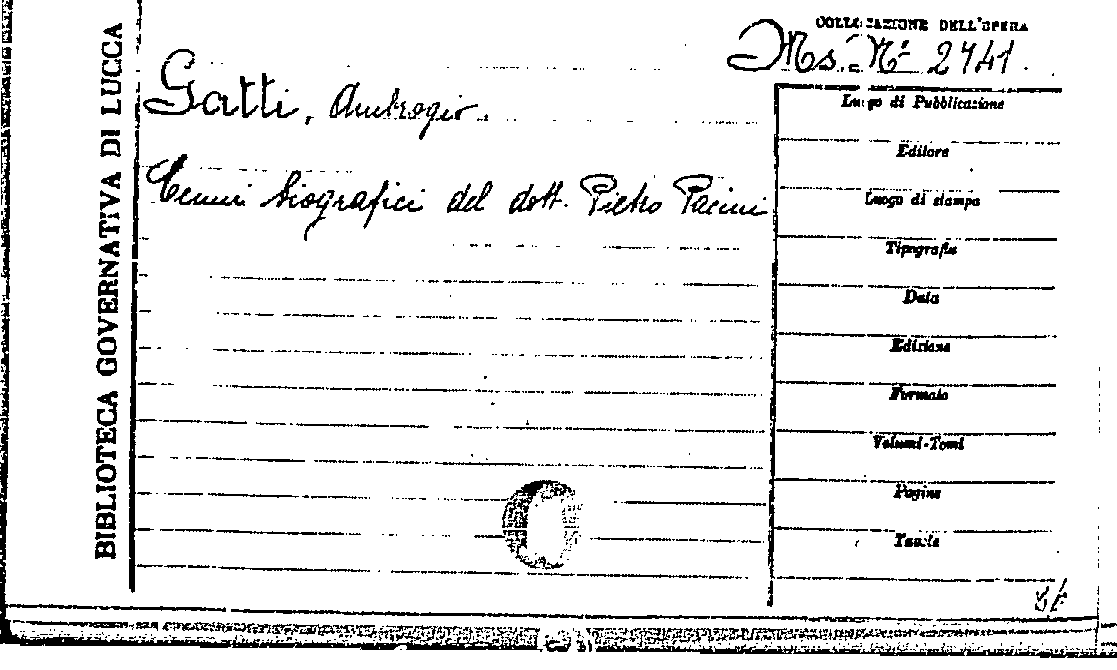 BIBLIOTECA GOVERNATIVA DI LUCCA
COLLOCAZIONE DELL'OPERA
Ms. N° 2741.
Gatti, Ambrogio.
Cenni biografici del dott. Pietro Pacini
Luogo di Pubblicazione
Editore
Luogo di stampa
Tipografia
Data
Edizione
Formato
Volumi-Tomi
Pagine
Tavole